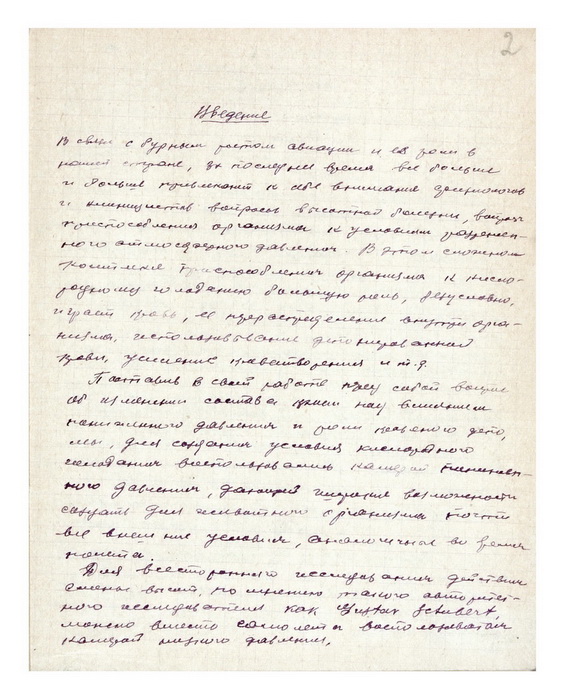 2
Введение
В связи с бурным ростом авиации и её роли в
нашей стране, за последнее время всё больше
и больше привлекают к себе внимание физиологов
и клиницистов вопросы высотной болезни, вопросы
приспособления организма к условиям разрежен-
ного атмосферного давления. В этом сложном
комплексе приспособления организма к кисло-
родному голоданию большую роль, безусловно,
играет кровь, её перераспределение внутри орга-
низма, использовывание депонированной
крови, усиление кроветворения и т.д.
Поставив в своей работе перед собой вопрос
об изменении состава крови под влиянием
пониженного давления и роли кровяного депо,
мы, для создания условия кислородного
голодания воспользовались камерой понижен-
ного давления, дающей широкие возможности
создать для животного организма почти
все внешние условия, аналогичные во время
полета.
Для всестороннего исследования действия
смены высот, по мнению такого авторитет-
ного исследователя как Gustav Schubert,
можно вместо самолета воспользоваться
камерой низкого давления.